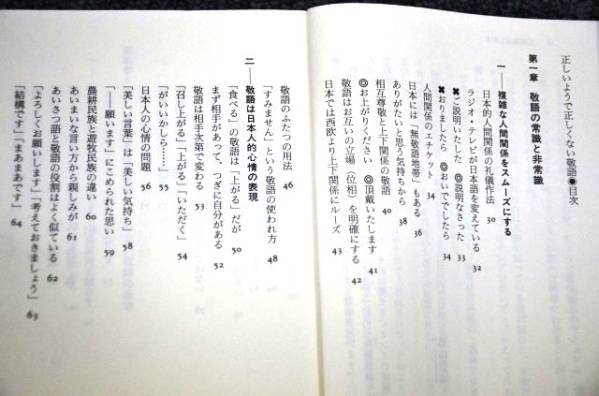 正しいようで正しくない敬語●目次
第一章 敬語の常識と非常識
一──複雑な人間関係をスムーズにする
日本的人間関係の礼儀作法 30
ラジオ・テレビが日本語を変えている 32
✖ご説明いたした ◎説明なさった 33
✖おりましたら ◎おいででしたら 34
人間関係のエチケット 34
日本には「無敬語地帯」もある 36
ありがたいと思う気持ちから 38
相互尊敬と上下関係の敬語 40
◎お上がりください ◎頂戴いたします 41
敬語はお互いの立場（位相）を明確にする 42
日本では西欧より上下関係にルーズ 43
敬語のふたつの用法 46
「すみません」という敬語の使われ方 48
二──敬語は日本人的心情の表現
「食べる」の敬語は「上がる」だが 50
まず相手があって、つぎに自分がある 52
敬語は相手次第で変わる 53
「召し上がる」「上がる」「いただく」 54
「がいいかしら……」 55
日本人の心情の問題 56
「美しい言葉」は「美しい気持ち」 58
「──願います」にこめられた思い 59
農耕民族と遊牧民族の違い 60
あいまいな言い方から親しみが 61
あいさつ語と敬語の役割はよく似ている 62
「よろしくお願いします」「考えておきましょう」 63
「結構です」「まあまあです」 64